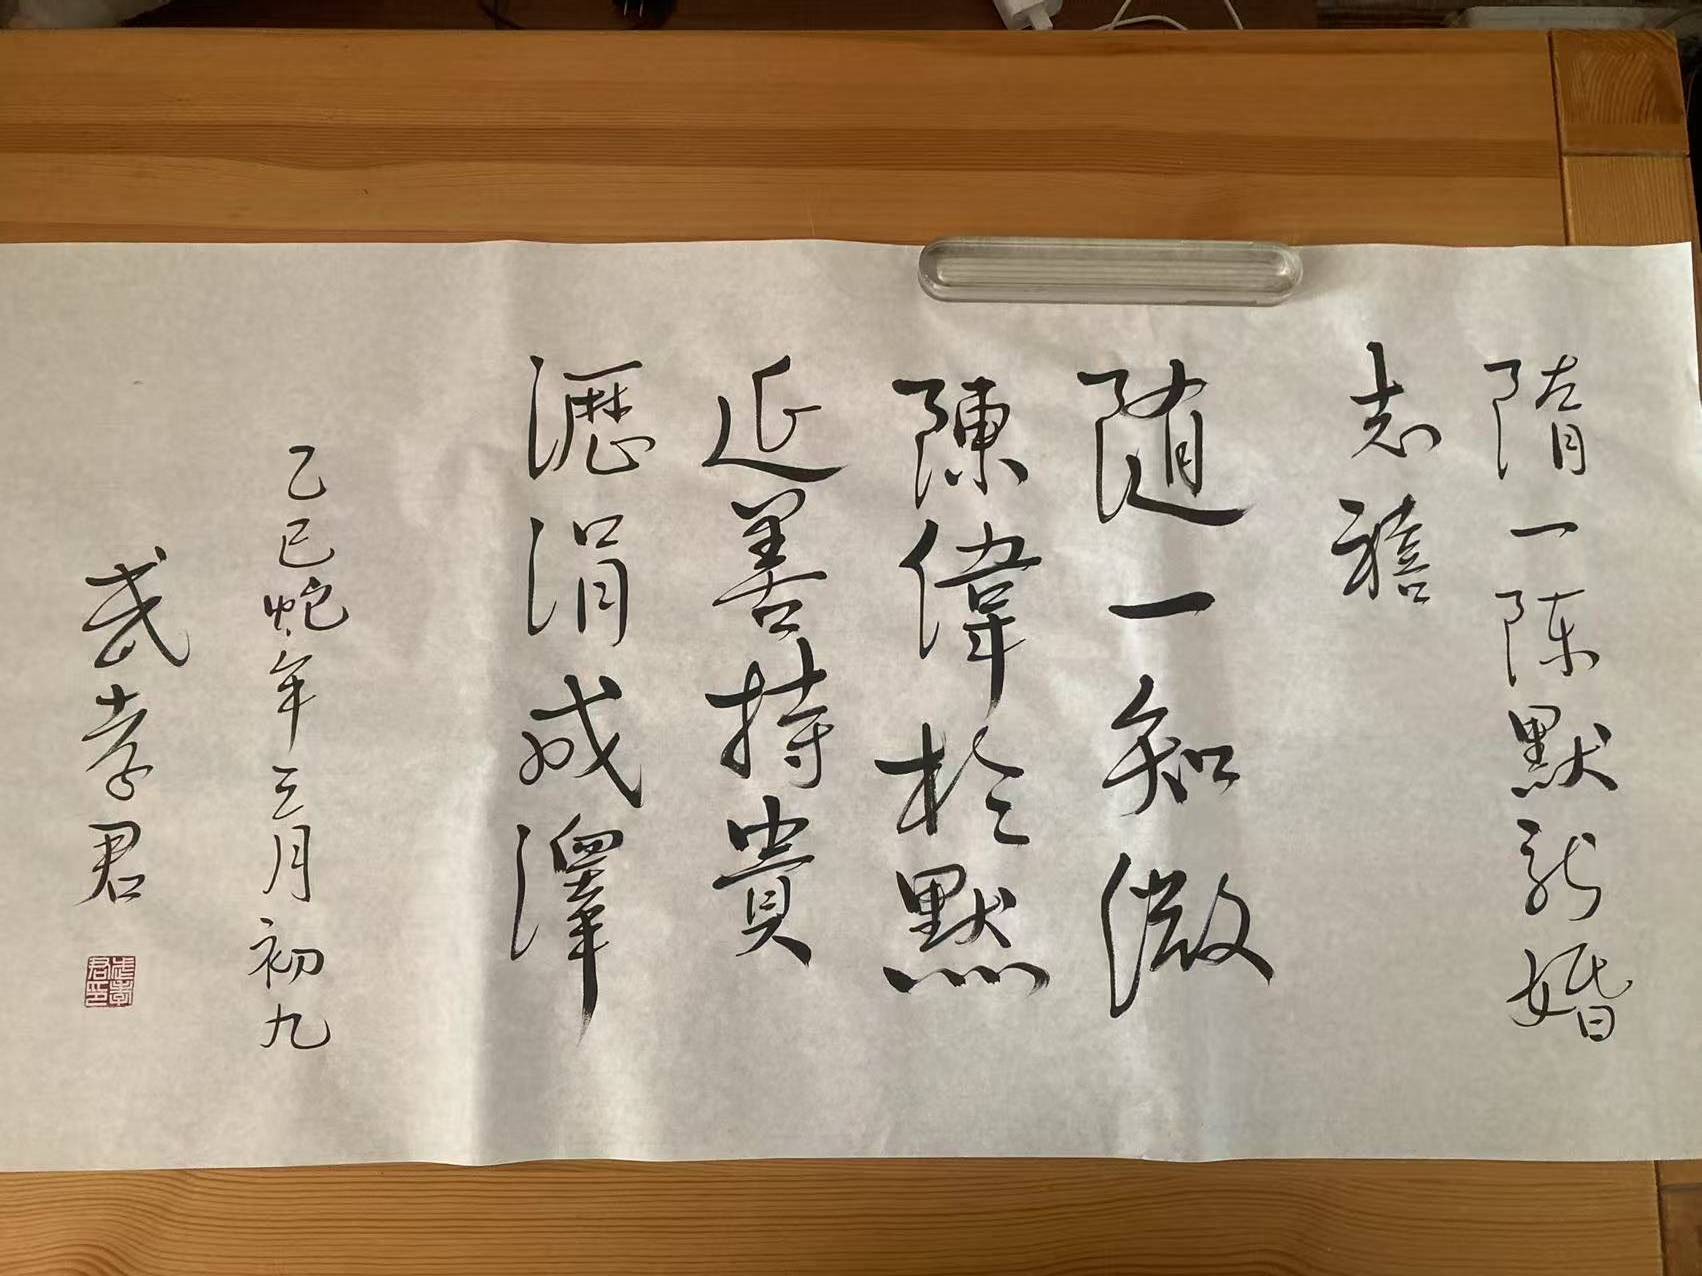 隋一陈默新婚
志禧
随一知微
陳偉於默
延善持貴
瀝涓成澤
乙巳蛇年三月初九
武孝君
武孝君印